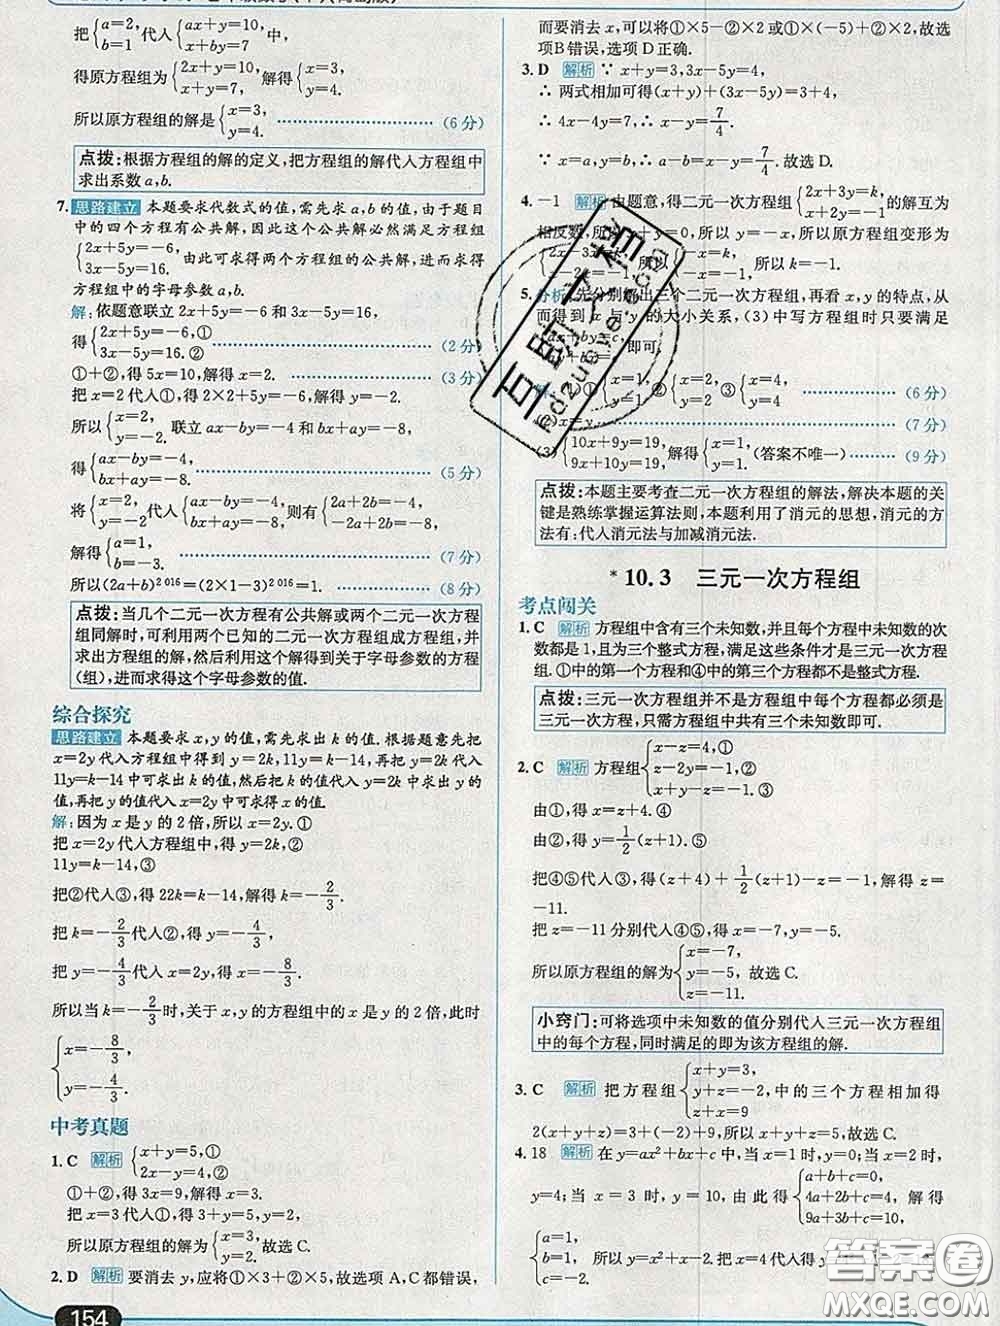 把{a=2, b=1代入{ax+y=10, x+by=7中,
得原方程组为{2x+y=10, x+y=7,解得{x=3, y=4.
所以原方程组的解是{x=3, y=4. (6分)
点拨:根据方程组的解的定义,把方程组的解代入方程组中
求出系数a,b.
7. 思路建立 本题要求代数式的值,需先求a,b的值,由于题目
中的四个方程有公共解,因此这个公共解必然满足方程组
{2x+5y=-6, 3x-5y=16. 由此可求得两个方程组的公共解,进而求得
方程组中的字母参数a,b.
解:依题意联立2x+5y=-6和3x-5y=16,
得{2x+5y=-6,① 3x-5y=16.② (2分)
①+②,得5x=10,解得x=2. (3分)
把x=2代入①,得2×2+5y=-6,解得y=-2.
所以{x=2, y=-2.联立ax-by=-4和bx+ay=-8,
得{ax-by=-4, bx+ay=-8. (5分)
将{x=2, y=-2代入{ax-by=-4, bx+ay=-8,则有{2a+2b=-4, -2a+2b=-8.
解得{a=1, b=-3. (7分)
所以(2a+b)^2016=(2×1-3)^2016=1. (8分)
点拨:当几个二元一次方程有公共解或两个二元一次方程
组同解时,可利用两个已知的二元一次方程组成方程组,并
求出方程组的解,然后利用这个解得到关于字母参数的方程
(组),进而求得这个字母参数的值.
综合探究
思路建立 本题要求x,y的值,需先求出k的值.根据题意先把
x=2y代入方程组中得到y=2k,11y=k-14,再把y=2k代入
11y=k-14中可求出k的值,然后把k的值代入y=2k中求出y的
值,再把y的值代入x=2y中可求得x的值.
解:因为x是y的2倍,所以x=2y.①
把x=2y代入方程组中,得y=2k,②
11y=k-14,③
把②代入③,得22k=k-14,解得k=-2/3.
把k=-2/3代入②,得y=-4/3.
把y=-4/3代入x=2y,得x=-8/3.
所以当k=-2/3时,关于x,y的方程组中的x是y的2倍,此时
{x=-8/3, y=-4/3.
中考真题
1. C 解析 {x+y=5,① 2x-y=4.②
①+②,得3x=9,解得x=3.
把x=3代入①,得3+y=5,解得y=2.
所以原方程组的解为{x=3, y=2.故选C.
2. D 解析 要消去y,应将①×3+②×5,故选项A,C都错误,
154
而要消去x,可以将①×5-②×2或①×(-5)+②×2,故选
项B错误,选项D正确.
3. D 解析 ∵x+y=3,3x-5y=4,
∴两式相加可得(x+y)+(3x-5y)=3+4,
∴4x-4y=7,∴x-y=7/4.
∵x=a,y=b,∴a-b=x-y=7/4.故选D.
4. -1 解析 由题意,得二元一次方程组{2x+3y=k, x+2y=-1的解互为
相反数,所以x+y=0,所以y=-x,所以原方程组变形为
{2x-3x=k, x-2x=-1.所以k=-1.
5. 分析:先分别解出三个二元一次方程组,再看x,y的特点,从
而得到x与y的大小关系,(3)中写方程组时只要满足
即可.
①{x=1, y=1 ②{x=2, y=2 ③{x=4, y=4 (6分)
(2)x=y. (7分)
(3){10x+9y=19, 9x+10y=19,解得{x=1, y=1.(答案不唯一) (9分)
点拨:本题主要考查二元一次方程组的解法,解决本题的关
键是熟练掌握运算法则,本题利用了消元的思想,消元的方
法有:代入消元法与加减消元法.
*10.3 三元一次方程组
考点闯关
1. C 解析 方程组中含有三个未知数,并且每个方程中未知数的次
数都是1,且为三个整式方程,满足这些条件才是三元一次方程
组.①中的第一个方程和④中的第三个方程都不是整式方程.
点拨:三元一次方程组并不是方程组中每个方程都必须是
三元一次方程,只需方程组中共有三个未知数即可.
2. C 解析 方程组{x-z=4,① z-2y=-1,② x+y-z=-1.③
由①,得x=z+4.④
由②,得y=1/2(z+1).⑤
把④⑤代入③,得(z+4)+1/2(z+1)-z=-1,解得z=
-11.
把z=-11分别代入④⑤,得x=-7,y=-5.
所以原方程组的解为{x=-7, y=-5, z=-11. 故选C.
小窍门:可将选项中未知数的值分别代入三元一次方程组
中的每个方程,同时满足的即为该方程组的解.
3. C 解析 把方程组{x+y=3, y+z=-2, x+z=9中的三个方程相加得
2(x+y+z)=3+(-2)+9,所以x+y+z=5.故选C.
4. 18 解析 在y=ax²+bx+c中,当x=1时,y=0;当x=2时,
y=4;当x=3时,y=10,由此得{a+b+c=0, 4a+2b+c=4, 9a+3b+c=10.解得
{a=1, b=1, c=-2. 所以y=x²+x-2.把x=4代入得y
答案圈
MXQE.COM